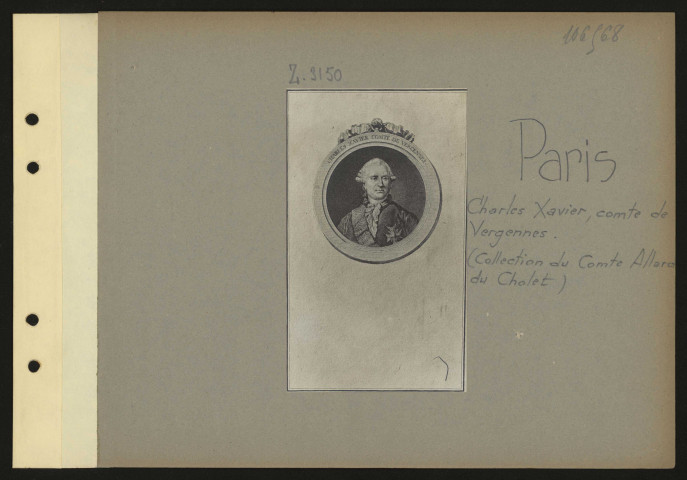 106568
Z. 3150
CHARLES XAVIER COMTE DE VERGENNES
Paris
Charles Xavier, comte de
Vergennes.
(Collection du Comte Allard
du Cholet)